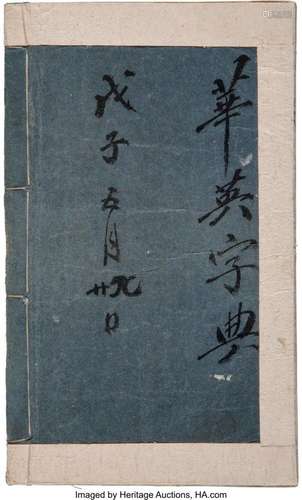 華英字典
戊子五月廿九日
Imaged by Heritage Auctions, HA.com